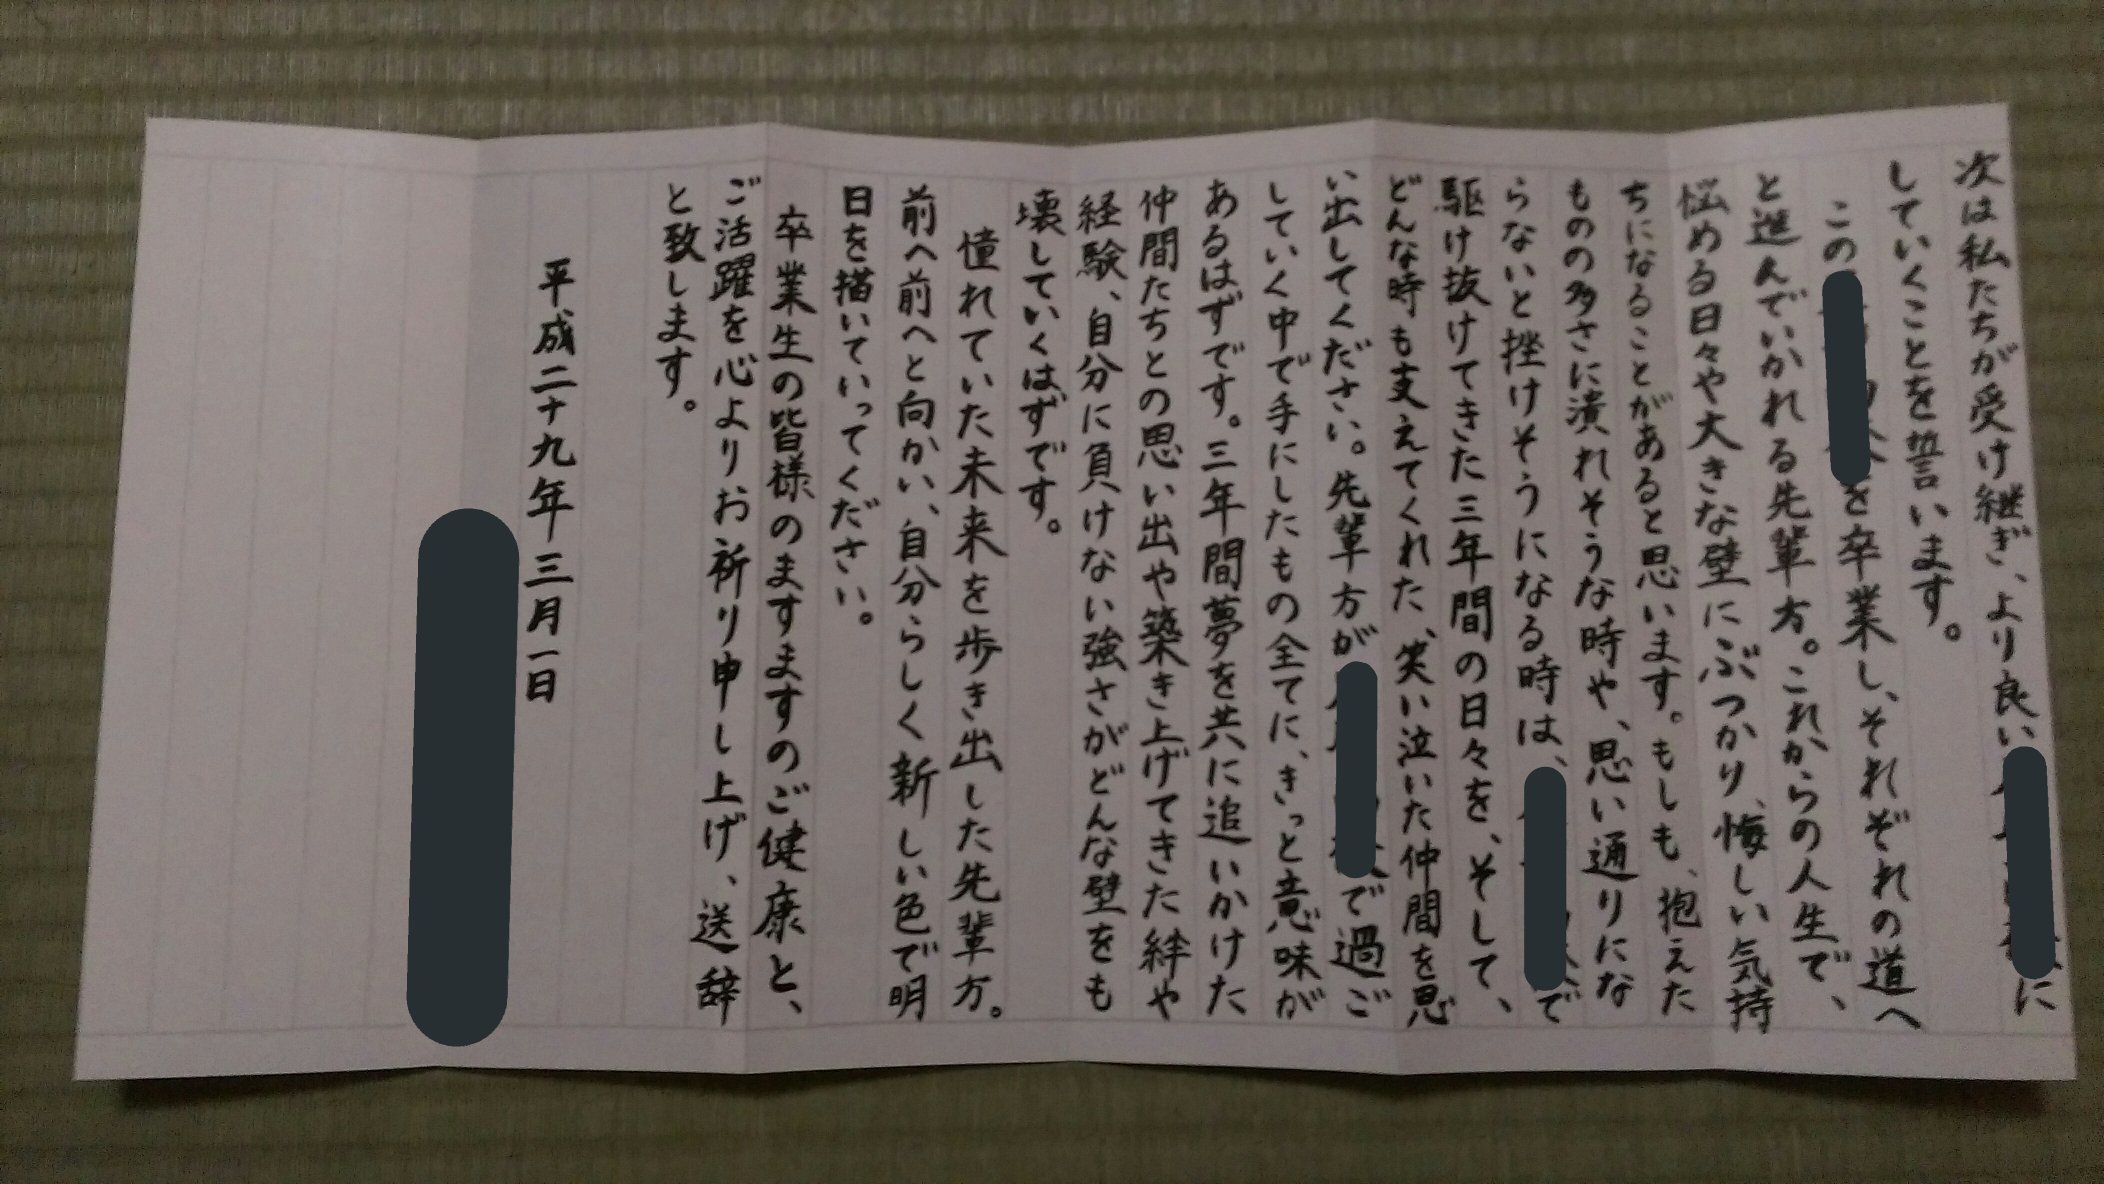 次は私たちが受け継ぎ、より良い に
していくことを誓います。
この を卒業し、それぞれの道へ
と進んでいかれる先輩方。これからの人生で、
悩める日々や大きな壁にぶつかり、悔しい気持
ちになることがあると思います。もしも、抱えた
ものの多さに潰れそうな時や、思い通りにな
らないと挫けそうになる時は、 で
駆け抜けてきた三年間の日々を、そして、
どんな時も支えてくれた、笑い泣いた仲間を思
い出してください。先輩方が で過ご
していく中で手にしたもの全てに、きっと意味が
あるはずです。三年間夢を共に追いかけた
仲間たちとの思い出や築き上げてきた絆や
経験、自分に負けない強さがどんな壁をも
壊していくはずです。
憧れていた未来を歩き出した先輩方。
前へ前へと向かい、自分らしく新しい色で明
日を描いていってください。
卒業生の皆様のますますのご健康と、
ご活躍を心よりお祈り申し上げ、送辞
と致します。
平成二十九年三月一日